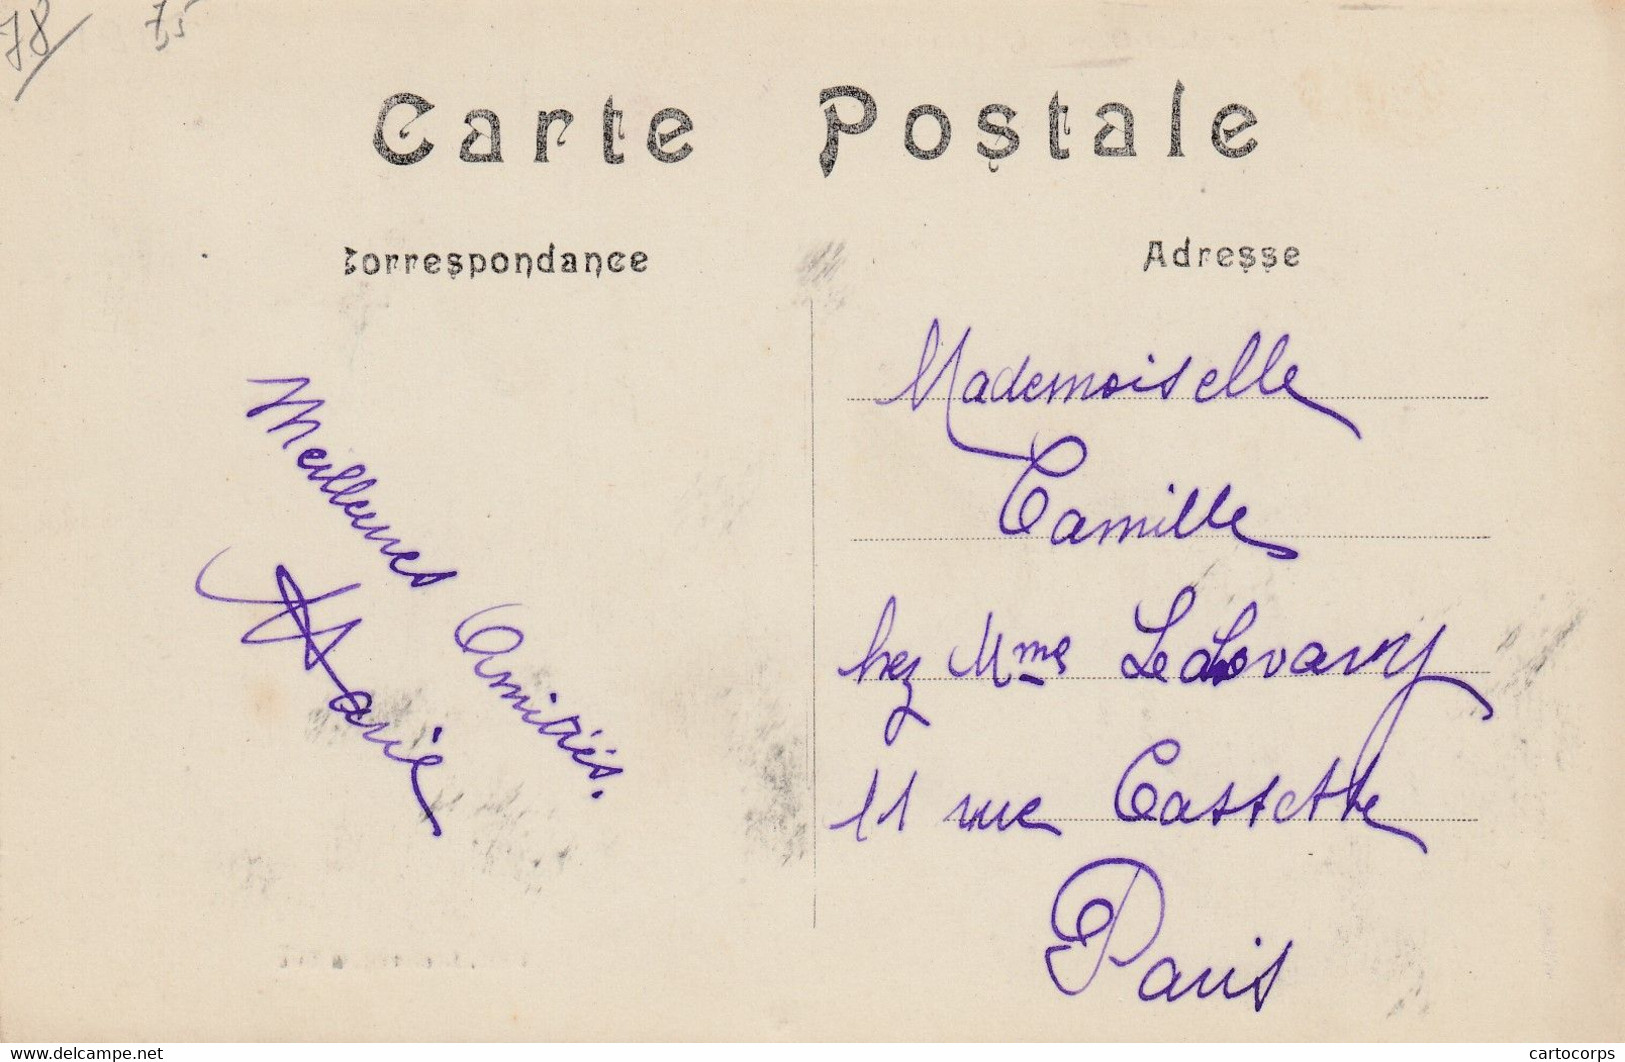 78 75
Carte Postale
Correspondance
Adresse
Meilleures Amitiés.
Marie
Mademoiselle
Camille
chez Mme
11 rue Cassette
Paris
www.delcampe.net
cartocorps